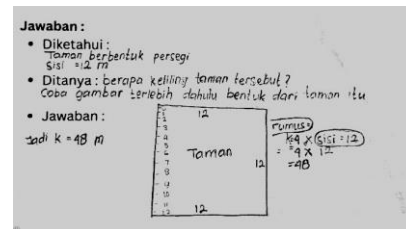 Jawaban :
• Diketahui :
Taman berbentuk persegi
sisi = 12 m
• Ditanya : berapa keliling taman tersebut ?
Coba gambar terlebih dahulu bentuk dari taman itu
• Jawaban :
Jadi k = 48 m
12
Taman
12
12
rumus :
k = 4 x sisi = 12
= 4 x 12
= 48